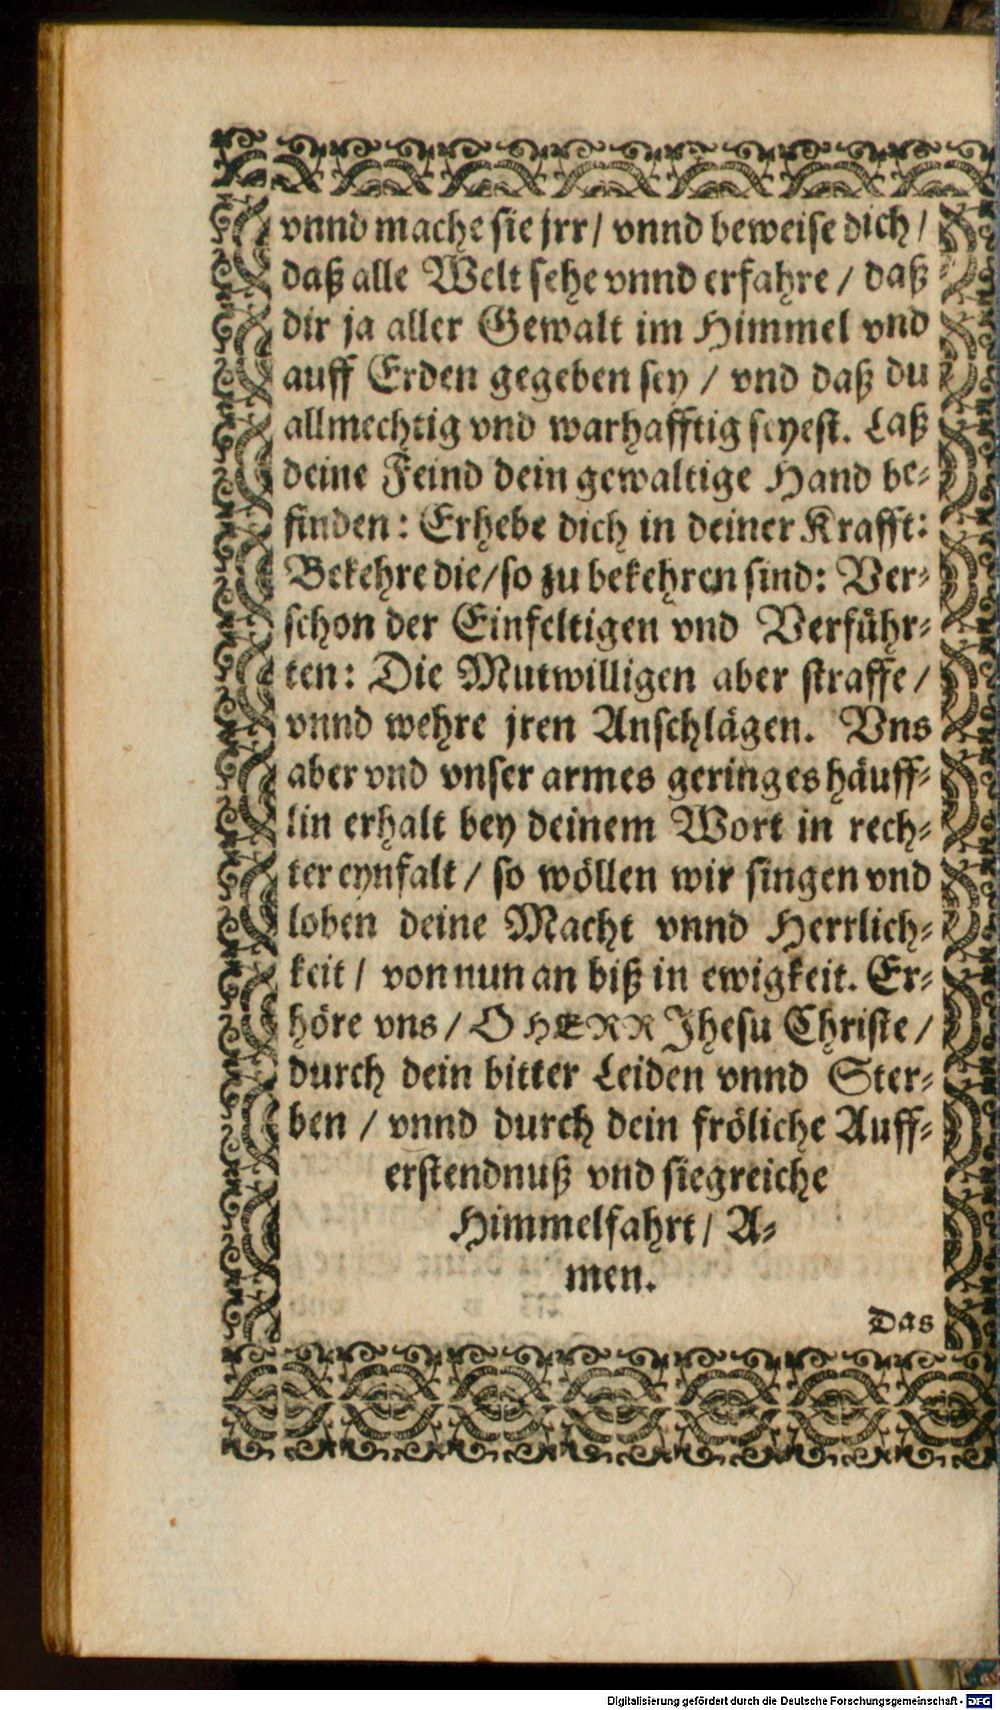 vnnd mache sie jrr / vnnd beweise dich /
daß alle Welt sehe vnnd erfahre / daß
dir ja aller Gewalt im Himmel vnd
auff Erden gegeben sey / vnd daß du
allmechtig vnd warhafftig seyest. Laß
deine Feind dein gewaltige Hand be-
finden: Erhebe dich in deiner Krafft:
Bekehre die / so zu bekehren sind: Ver-
schon der Einfeltigen vnd Verführ-
ten: Die Mutwilligen aber straffe /
vnnd wehre jren Anschlägen. Vns
aber vnd vnser armes geringes häuff-
lin erhalt bey deinem Wort in rech-
ter eynfalt / so wöllen wir singen vnd
loben deine Macht vnnd Herrlich-
keit / von nun an biß in ewigkeit. Er-
höre vns / O HERR Jhesu Christe /
durch dein bitter Leiden vnnd Ster-
ben / vnnd durch dein fröliche Auff-
erstendnuß vnd siegreiche
Himmelfahrt / A-
men.
Das
Digitalisierung gefördert durch die Deutsche Forschungsgemeinschaft - DFG